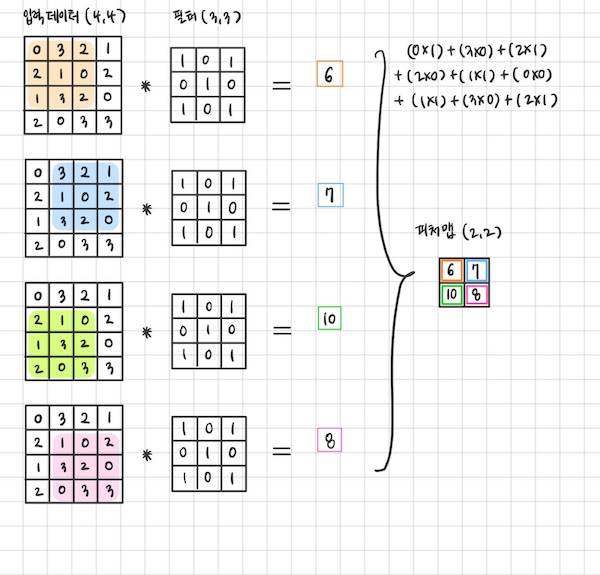 입력 데이터 (4,4)
필터 (3,3)
0 3 2 1
2 1 0 2
1 3 2 0
2 0 3 3
*
1 0 1
0 1 0
1 0 1
=
6
(0×1)+(3×0)+(2×1)
+(2×0)+(1×1)+(0×0)
+(1×1)+(3×0)+(2×1)
0 3 2 1
2 1 0 2
1 3 2 0
2 0 3 3
*
1 0 1
0 1 0
1 0 1
=
7
0 3 2 1
2 1 0 2
1 3 2 0
2 0 3 3
*
1 0 1
0 1 0
1 0 1
=
10
0 3 2 1
2 1 0 2
1 3 2 0
2 0 3 3
*
1 0 1
0 1 0
1 0 1
=
8
피처맵 (2,2)
6 7
10 8